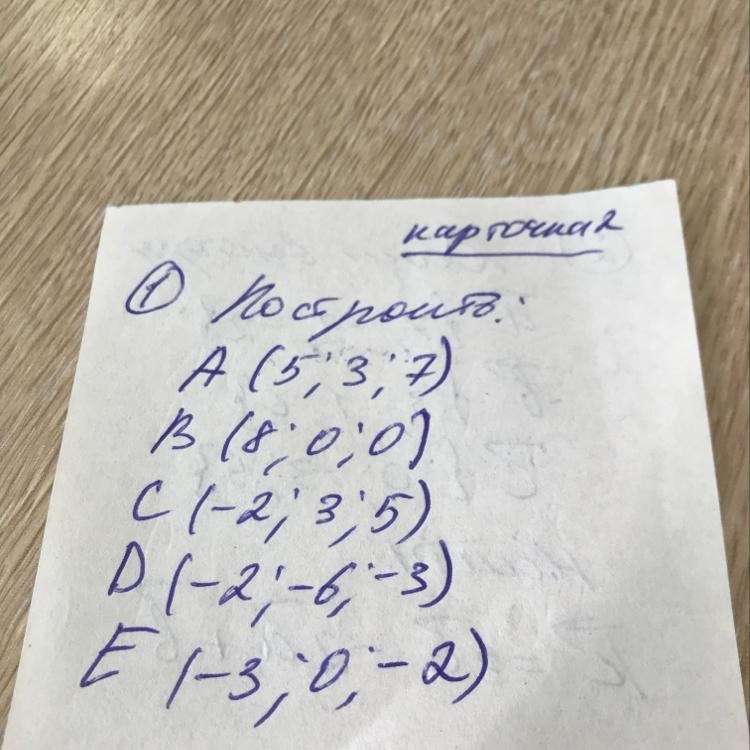 карточка 2
① Построить:
A (5; 3; 7)
B (8; 0; 0)
C (-2; 3; 5)
D (-2; -6; -3)
E (-3; 0; -2)